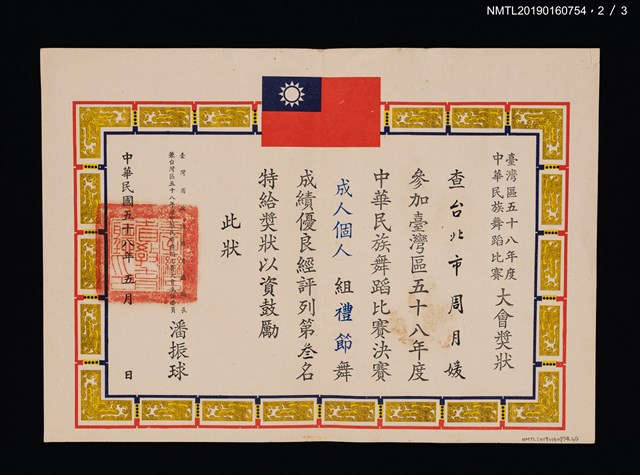 NMTL20190160754,2/3
臺灣區五十八年度
中華民族舞蹈比賽
大會獎狀
查台北市周月媛
參加臺灣區五十八年度
中華民族舞蹈比賽決賽
成人個人組禮節舞
成績優良經評列第叁名
特給獎狀以資鼓勵
此狀
潘振球
中華民國五十八年五月 日